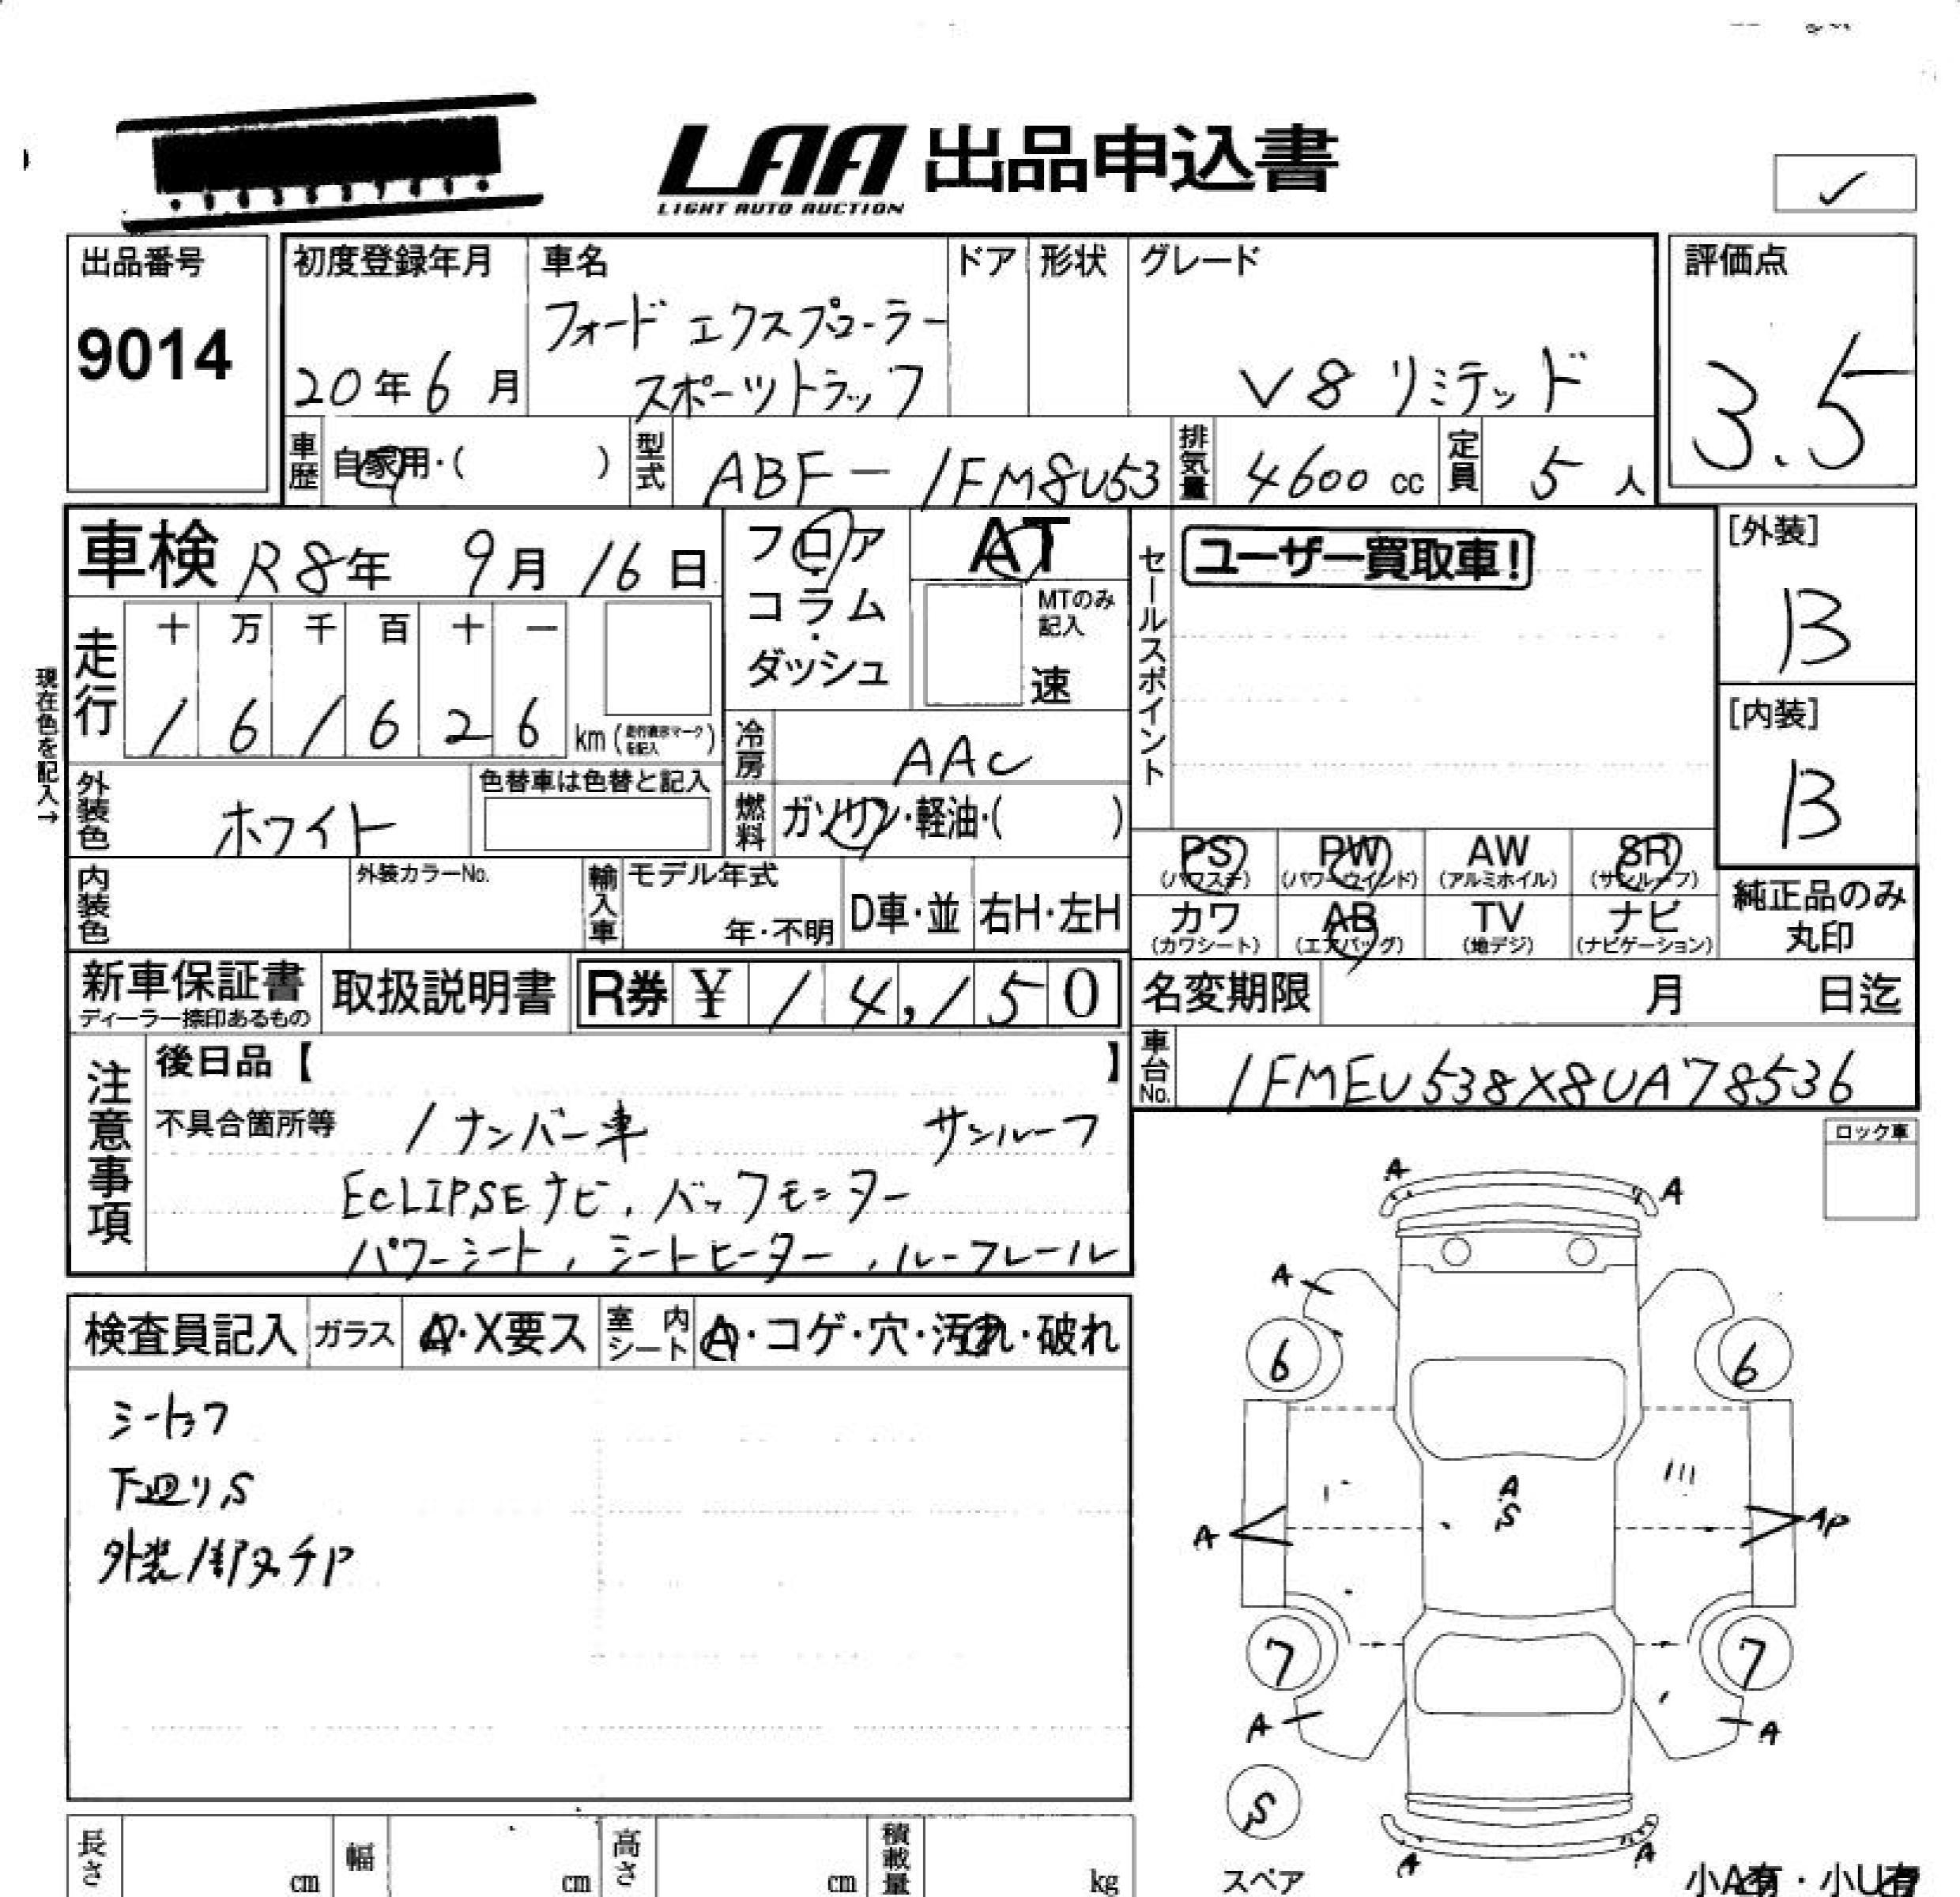 LAA 出品申込書
LIGHT AUTO AUCTION
✓
出品番号
9014
初度登録年月
20年6月
車名
フォード エクスプローラー
スポーツトラック
ドア
形状
グレード
V8 リミテッド
評価点
3.5
車歴
自家用・( )
型式
ABF-1FM8U53
排気量
4600 cc
定員
5 人
車検 R8年 9月 16日
フロア・コラム・ダッシュ
AT
MTのみ記入
速
セールスポイント
ユーザー買取車!
[外装]
B
[内装]
B
現在色を記入→
走行
十 万 千 百 十 一
1 6 1 6 2 6 km (走行表示マークを記入)
冷房
AAC
外装色
ホワイト
色替車は色替と記入
燃料
ガソリン・軽油・( )
PS (パワステ)
PW (パワーウインド)
AW (アルミホイル)
SR (サンルーフ)
カワ (カワシート)
AB (エアバッグ)
TV (地デジ)
ナビ (ナビゲーション)
純正品のみ
丸印
内装色
外装カラーNo.
輸入車
モデル年式
年・不明
D車・並
右H・左H
新車保証書
ディーラー捺印あるもの
取扱説明書
R券 ¥ 14,150
名変期限 月 日迄
車台No.
1FMEU538X8UA78536
注意事項
後日品【 】
不具合箇所等 1ナンバー車 サンルーフ
ECLIPSEナビ、バックモニター
パワーシート、シートヒーター、ルーフレール
ロック車
検査員記入
ガラス
A・X要ス
室内シート
A・コゲ・穴・汚れ・破れ
下廻りS
A
A
A
6
6
A
S
A
AP
7
7
A
A
S
スペア
A
A
長さ cm
幅 cm
高さ cm
積載量 kg
小A有・小U有